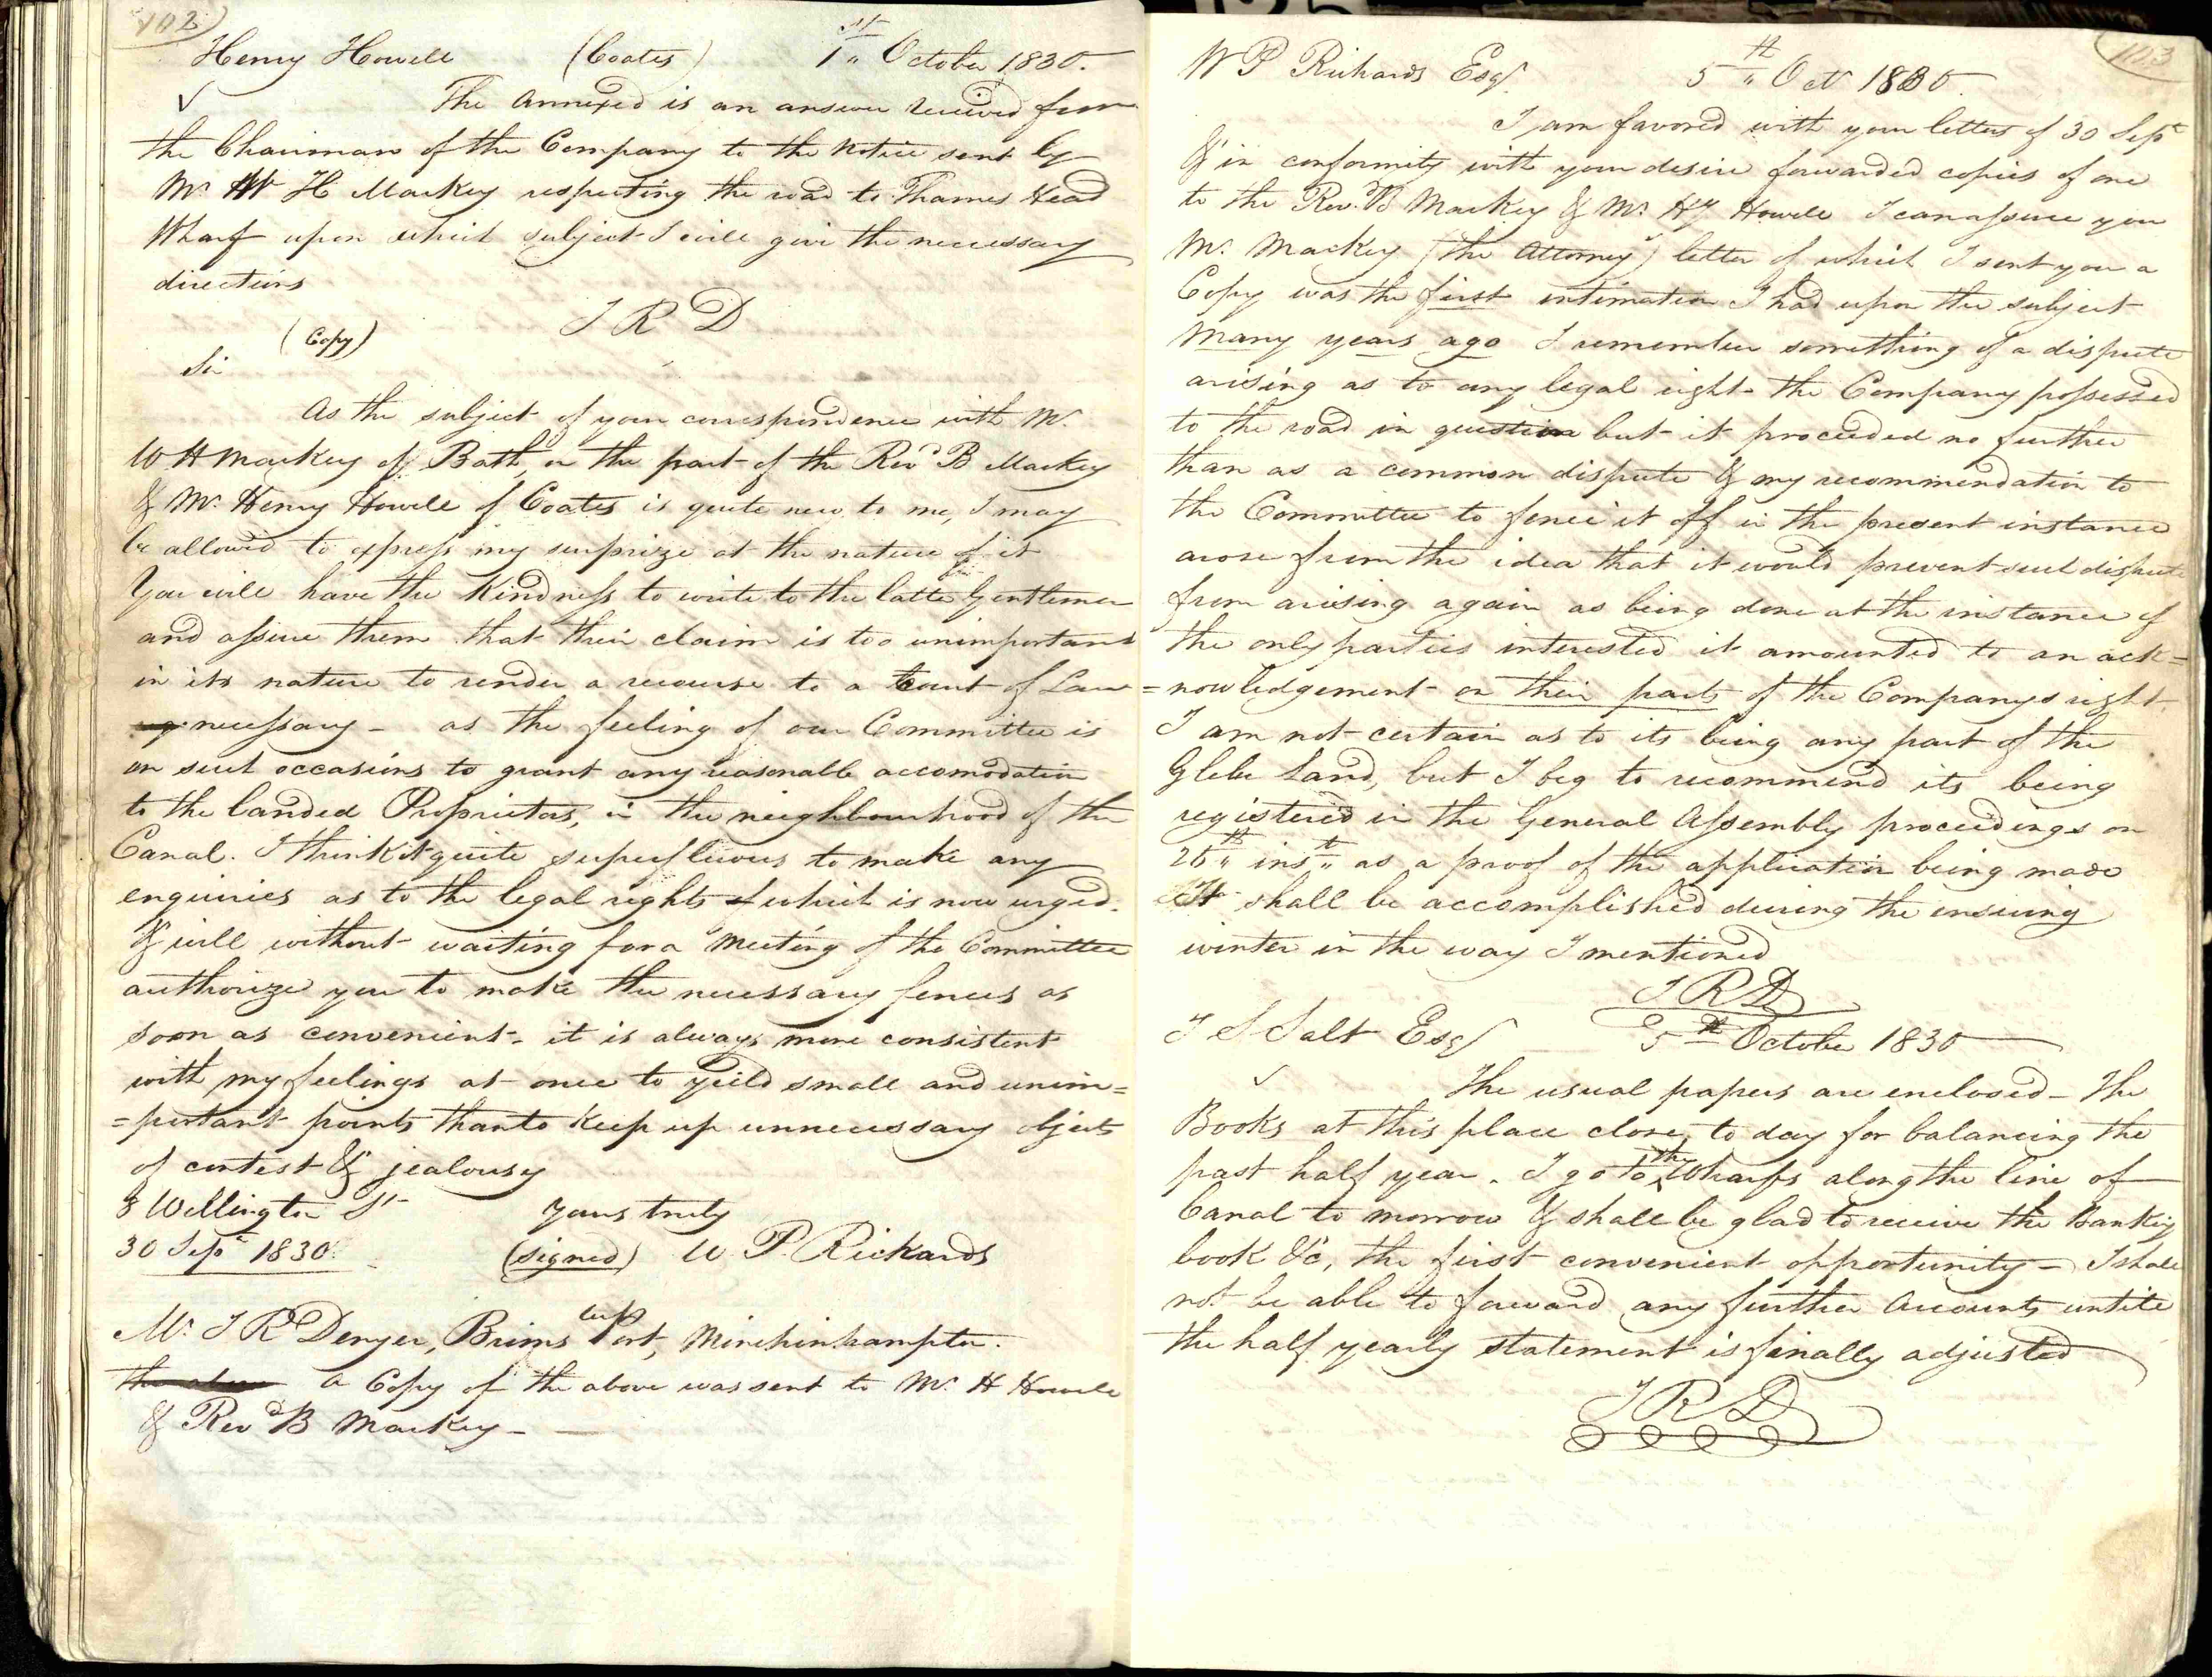 102
Henry Howell (Coates) 1st October 1830.
The Annexed is an answer received from
the Chairman of the Company to the Notice sent by
Mr W H Mackey respecting the road to Thames Head
Wharf upon which subject I will give the necessary
directions
J R D
(Copy)
Sir
As the subject of your correspondence with Mr.
W H Mackey of Bath, on the part of the Revd B Mackey
& Mr. Henry Howell of Coates is quite new to me, I may
be allowed to express my surprize at the nature of it
You will have the Kindness to write to the latter Gentlemen
and assure them that their claim is too unimportant
in its nature to render a recourse to a Court of Law
necessary - as the feeling of our Committee is
on such occasions to grant any reasonable accomodation
to the landed Proprietors, in the neighbourhood of the
Canal. I think it quite superfluous to make any
enquiries as to the legal rights of which is now urged.
& will without waiting for a Meeting of the Committee
authorize you to make the necessary fences as
soon as convenient - it is always more consistent
with my feelings at once to yeild small and unim=
=portant points than to keep up unnecessary objects
of contest & jealousy
8 Wellington St Yours truly
30 Sept 1830. (signed) W. P. Rickards
Mr. J R Denyer, Brimscomb Port, Minchinhampton.
the above a Copy of the above was sent to Mr. H Howell
& Revd B Mackey -
103
W P Richards Esqr. 5th Oct 1830.
I am favored with your letters of 30 Sept
& in conformity with your desire forwarded copies of one
to the Rev. B Mackey & Mr. Hy Howell I can assure you
Mr. Mackey (the Attorney) letter of which I sent you a
Copy was the first intimation I had upon the subject
Many years ago I remember something of a dispute
arising as to any legal right the Company possessed
to the road in question but it proceeded no further
than as a common dispute & my recommendation to
the Committee to fence it off in the present instance
arose from the idea that it would prevent such dispute
from arising again as being done at the instance of
the only parties interested it amounted to an ack=
=nowledgement on their parts of the Companys right.
I am not certain as to its being any part of the
Glebe Land, but I beg to recommend its being
registered in the General Assembly proceedings on
26th inst as a proof of the application being made
It shall be accomplished during the ensuing
winter in the way I mentioned
J R D
J S Salt Esqr 5th October 1830
The usual papers are enclosed - The
Books at this place close, to day for balancing the
past half year. I go to the Wharfs along the line of
Canal to morrow & shall be glad to receive the Banking
book &c, the first convenient opportunity - I shall
not be able to forward any further Accounts untill
the half yearly statement is finally adjusted
J R D